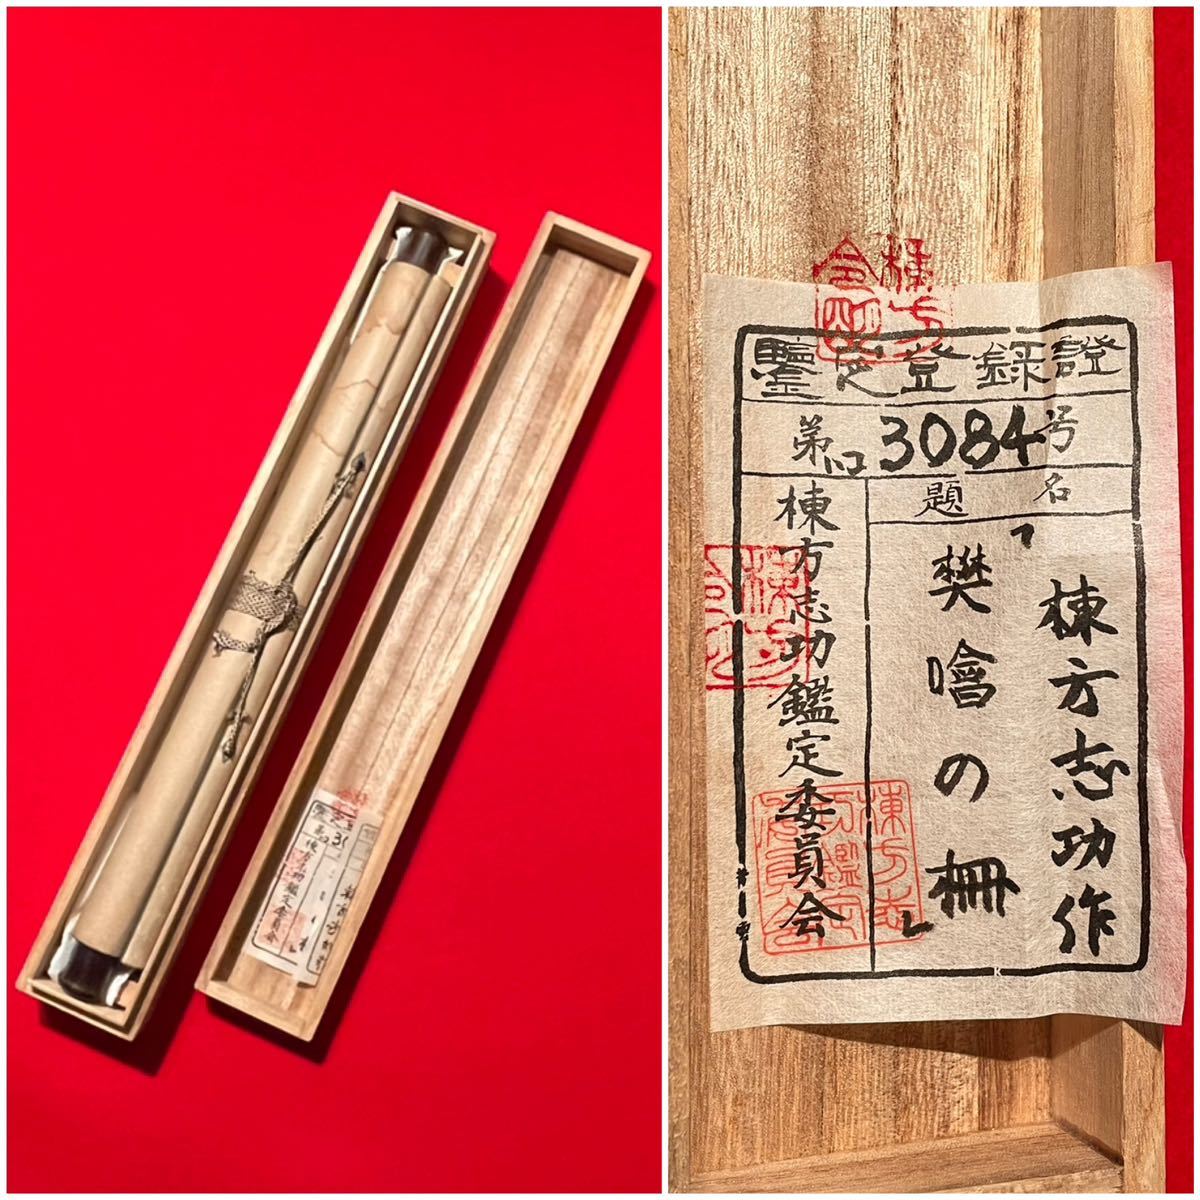 鑒定登録證
第ハロ3084号
題名
棟方志功作
「樊噲の柵」
棟方志功鑑定委員会